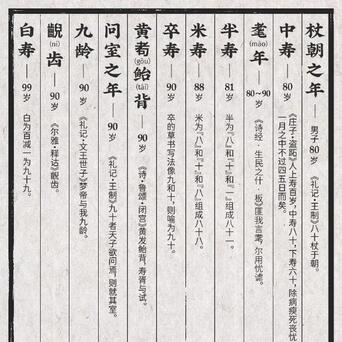 杖朝之年——男子80岁 《礼记·王制》八十杖于朝。
中寿——80岁 《庄子·盗跖》人上寿百岁，中寿八十，下寿六十，除病瘐死丧忧
一月之中不过四五日而矣。
耄(mào)年——80~90岁 《诗经·生民之什·板》匪我言耄，尔用忧谑。
半寿——81岁 半为“八”和“十”和“一”组成八十一。
米寿——88岁 米为“八”和“十”和“八”组成八十八。
卒寿——90岁 卒的草书写法像九和十，则喻为九十。
黄耇(gǒu)鲐(tái)背——90岁 《诗·鲁颂·閟宫》黄发鲐背，寿胥与试。
问室之年——90岁 《礼记·王制》九十者天子欲问焉，则就其室。
九龄——90岁 《礼记·文王世子》梦帝与我九龄。
齯(ní)齿——90岁 《尔雅·释诂》齯齿。
白寿——99岁 白为百减一为九十九。